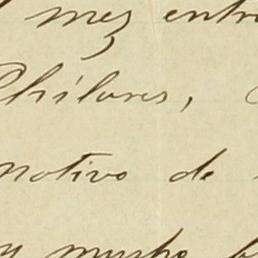 mez entr
Philares,
motivo de
y mucho